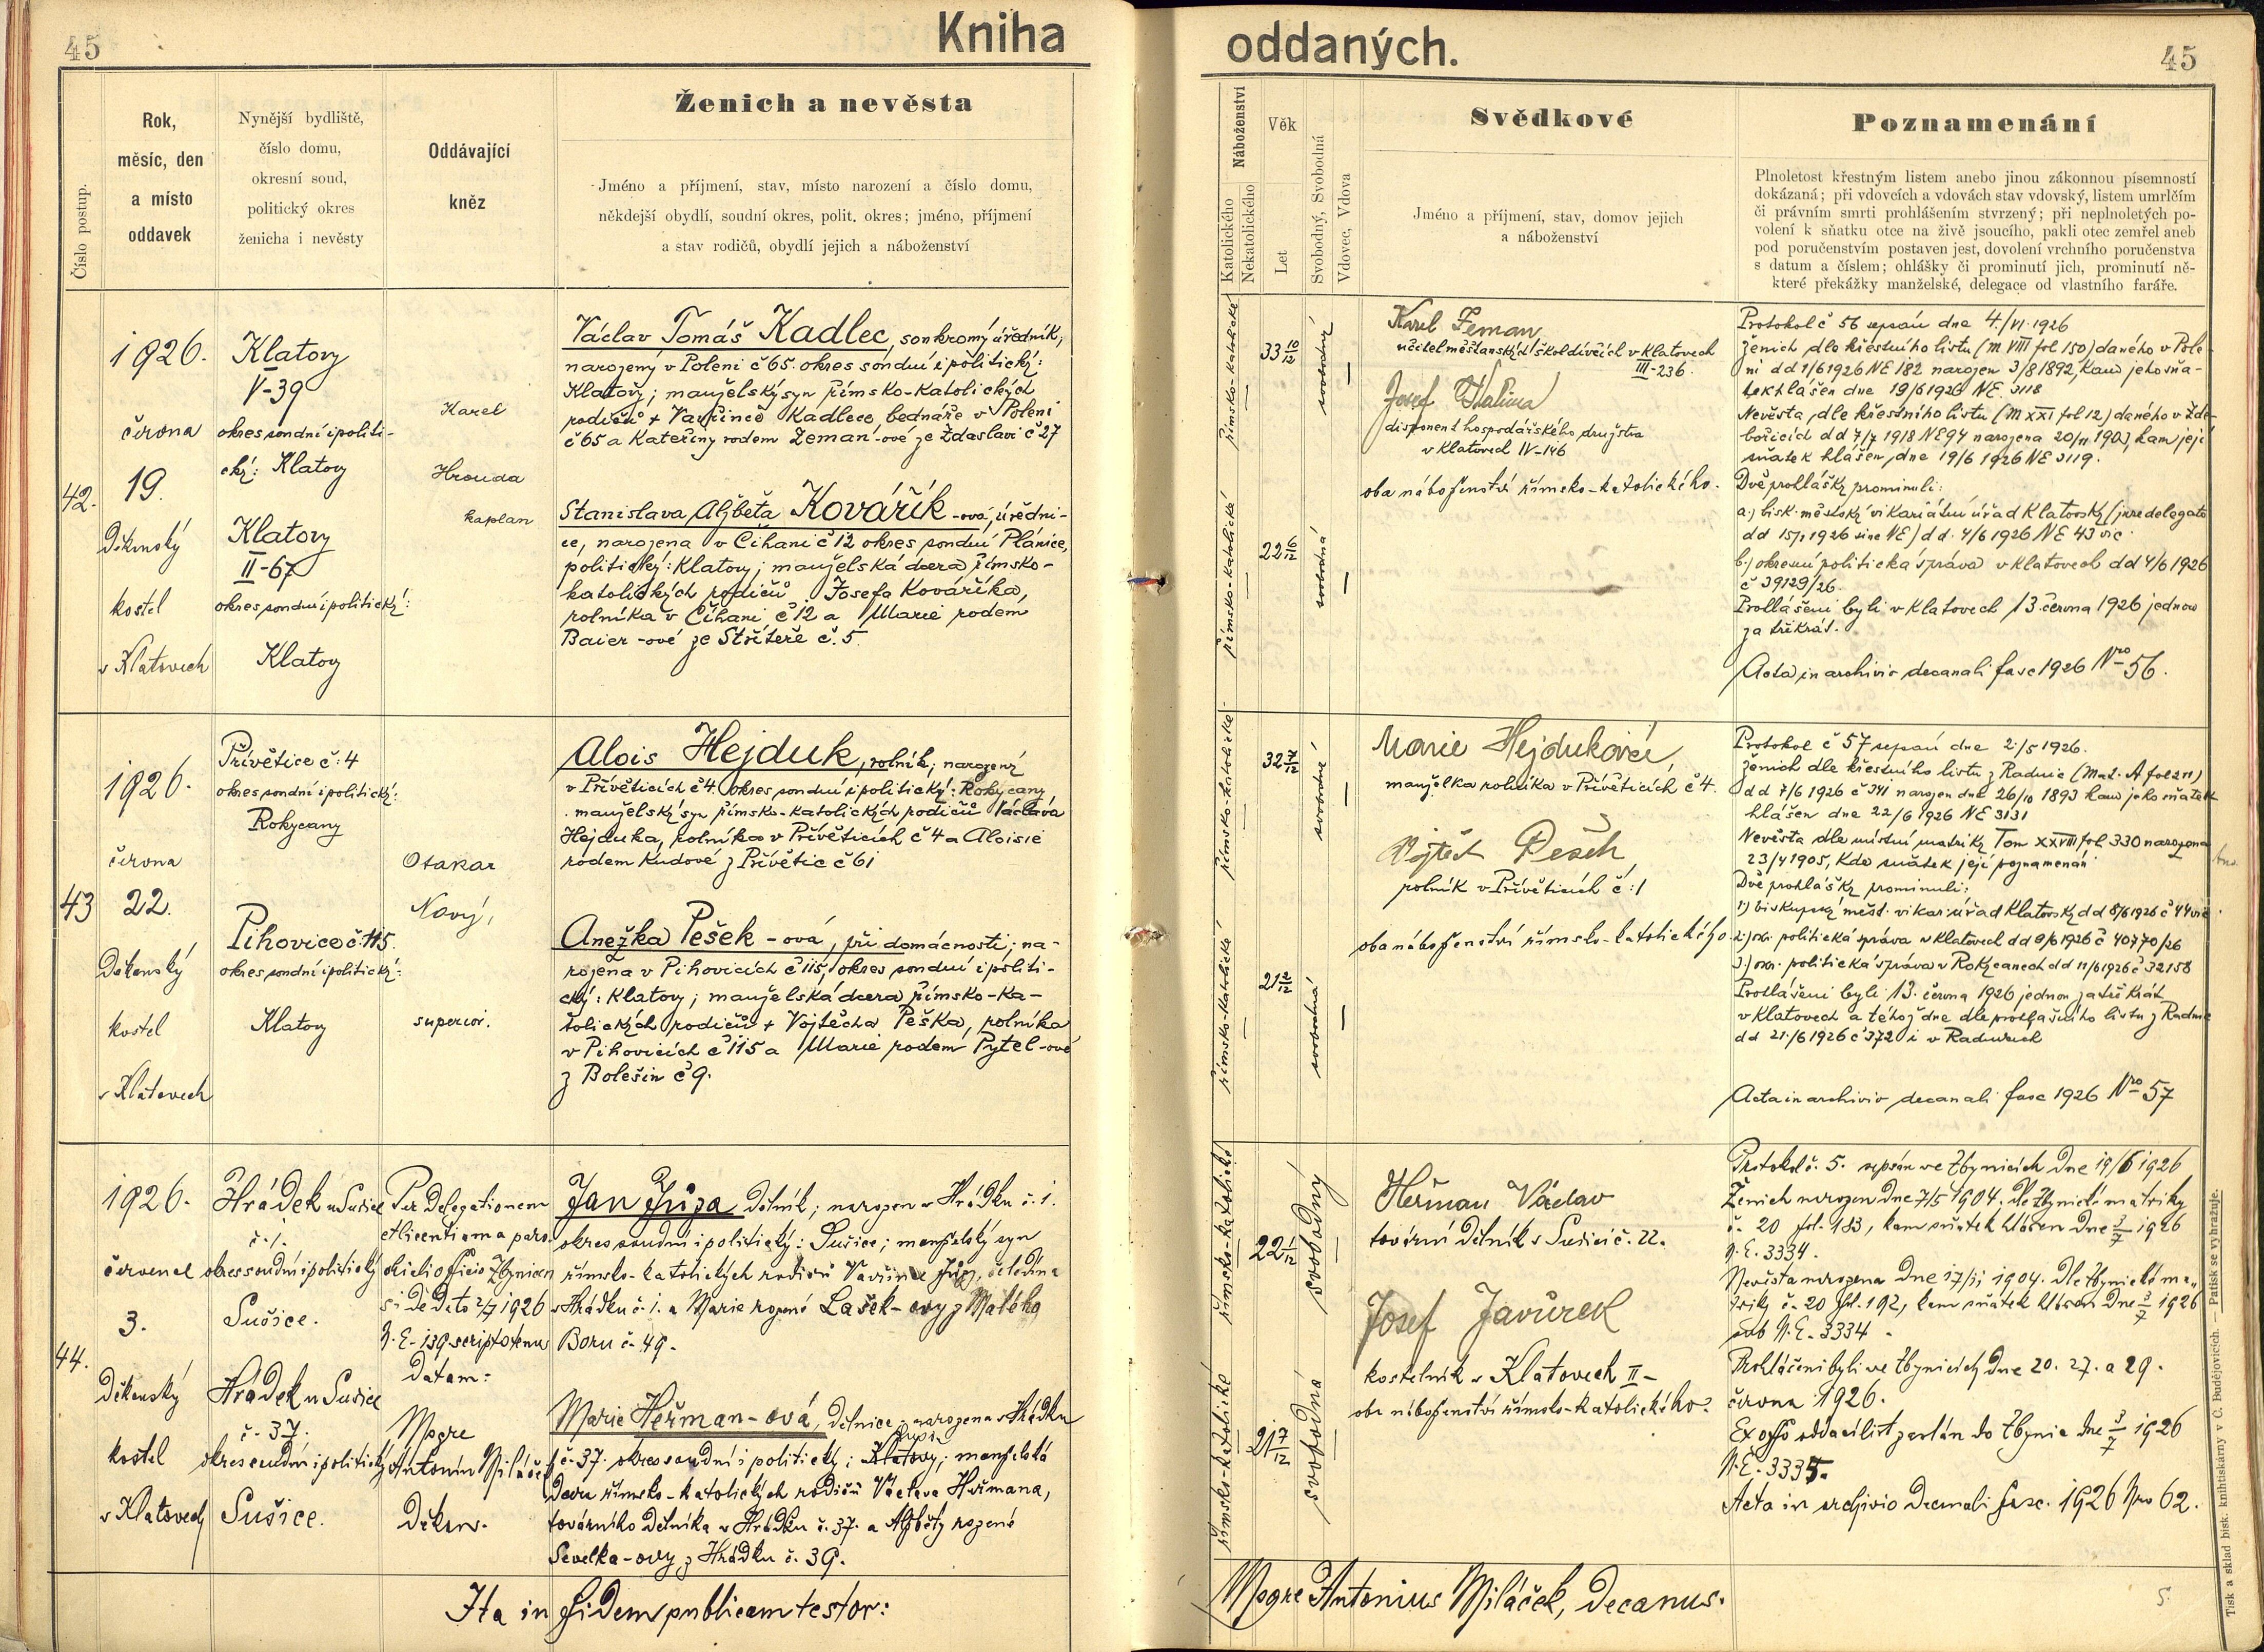 45
Kniha
oddaných.
45
Číslo postup.
Rok,
měsíc, den
a místo
oddavek
Nynější bydliště,
číslo domu,
okresní soud,
politický okres
ženicha i nevěsty
Oddávající
kněz
Ženich a nevěsta
Jméno a příjmení, stav, místo narození a číslo domu,
někdejší obydlí, soudní okres, polit. okres; jméno, příjmení
a stav rodičů, obydlí jejich a náboženství
Náboženství
Katolického
Nekatolického
Věk
Let
Svobodný, Svobodná
Vdovec, Vdova
Svědkové
Jméno a příjmení, stav, domov jejich
a náboženství
Poznamenání
Plnoletost křestným listem anebo jinou zákonnou písemností
dokázaná; při vdovcích a vdovách stav vdovský, listem umrlčím
či právním smrti prohlášením stvrzený; při neplnoletých po-
volení k sňatku otce na živě jsoucího, pakli otec zemřel aneb
pod poručenstvím postaven jest, dovolení vrchního poručenstva
s datum a číslem; ohlášky či prominutí jich, prominutí ně-
které překážky manželské, delegace od vlastního faráře.
42.
1926.
června
19.
Děkanský
kostel
v Klatovech
Klatovy
V-39
okres soudní i politi-
cký: Klatovy
Klatovy
II-67
okres soudní i politický:
Klatovy
Karel
Hrouda
kaplan
Václav Tomáš Kadlec, soukromý úředník,
narozený v Poleni č 65. okres soudní i politický:
Klatovy; manželský syn římsko-katolických
rodičů + Vavřince Kadlece, bednáře v Poleni
č 65 a Kateřiny rodem Zeman-ové ze Ždaslavi č 27
Stanislava Alžběta Kovářík-ová, úředni-
ce, narozena v Čihani č 12 okres soudní Plánice,
politický: Klatovy; manželská dcera římsko-
katolických rodičů Josefa Kováříka,
rolníka v Číhani č 12 a Marie rodem
Baier-ové ze Střítěře č. 5.
římsko-katolické
33 10/12
svobodný
římsko-katolické
22 6/12
svobodná
Karel Zeman
učitel měšťanských škol dívčích v Klatovech
III-236.
Josef
disponent hospodářského družstva
v Klatovech IV-146
oba náboženství římsko-katolického.
Protokol č 56 sepsán dne 4./VI. 1926
ženich dle křestního listu (m VIII fol 150) daného v Pole-
ni dd 1/6 1926 NE 182 narozen 3/8 1892, kam jeho sňa-
tek hlášen dne 19/6 1926 NE 3118
Nevěsta dle křestního listu (m XXI fol 12) daného v Žde-
bořicích dd 7/7 1918 NE 94 narozena 20/11 1903, kam její
sňatek hlášen dne 19/6 1926 NE 3119.
Dvě prohlášky prominuli:
a.) bisk. městský vikariátní úřad Klatovský (jure delegato
dd 15/1 1926 sine NE) dd. 4/6 1926 NE 43 vic.
b.) okresní politická správa v Klatovech dd 4/6 1926
č 39129/26.
Prohlášeni byli v Klatovech 13. června 1926 jednou
za třikrát.
Acta in archivio decanali fasc 1926 Nro 56.
43
1926.
června
22.
Děkanský
kostel
v Klatovech
Přívětice č: 4
okres soudní i politický:
Rokycany
Pihovice č. 115.
okres soudní i politický:
Klatovy
Otakar
Nový,
superior.
Alois Hejduk, rolník; narozený
v Přívěticích č 4. okres soudní i politický: Rokycany,
manželský syn římsko-katolických rodičů Václava
Hejduka, rolníka v Přívěticích č 4 a Aloisie
rodem Kudové z Přívětic č 61
Anežka Pešek-ová, při domácnosti; na-
rozena v Pihovicích č 115, okres soudní i politi-
cký: Klatovy; manželská dcera římsko-ka-
tolických rodičů + Vojtěcha Peška, rolníka
v Pihovicích č 115 a Marie rodem Pytel-ové
z Bolešin č 9.
římsko-katolické
32
svobodný
římsko-katolické
21 2/12
svobodná
Marie Hejduková,
manželka rolníka v Přívěticích č 4.
Vojtěch Pešek
rolník v Přívěticích č: 1
oba náboženství římsko-katolického.
Protokol č 57 sepsán dne 2./5 1926.
ženich dle křestního listu z Radnic (Mat. A fol 211)
dd 7/6 1926 č 341 narozen dne 26/10 1893 kam jeho sňatek
hlášen dne 22/6 1926 NE 3131
Nevěsta dle místní matriky Tom XXVIII fol. 330 narozena
23/4 1905, kde sňatek její poznamenán
Dvě prohlášky prominuli:
1.) biskupský měst. vikar. úřad Klatovský dd 8/6 1926 č 44 vic.
2.) okr. politická správa v Klatovech dd 9/6 1926 č 40770/26
3.) okr. politická správa v Rokycanech dd 11/6 1926 č 32158
Prohlášeni byli 13. června 1926 jednou za třikrát
v Klatovech a téhož dne dle prohlašního listu z Radnic
dd 21./6 1926 č 372 i v Radnicích
Acta in archivio decanali fasc 1926 Nro 57
44.
1926.
července
3.
Děkanský
kostel
v Klatovech
Hrádek u Sušice
č. 1.
okres soudní i politický
Sušice.
Hrádek u Sušice
č. 37.
okres soudní i politický
Sušice.
Per delegationem
et licentiam a paro-
chiali officio Zbynicen-
si de dato 2/7 1926
N. E. 139 scripto tenus
datam:
Mgre
Antonín Miláček
Děkan.
Jan Jůza dělník; narozen v Hrádku č. 1.
okres soudní i politický: Sušice; manželský syn
římsko-katolických rodičů Vavřince Jůzy, čeledína
v Hrádku č. 1. a Marie rozené Lašek-ovy z Malého
Boru č. 49.
Marie Heřman-ová, dělnice; narozena v Hrádku
Sušice
č. 37. okres soudní i politický: Klatovy; manželská
dcera římsko-katolických rodičů Václava Heřmana,
továrního dělníka v Hrádku č. 37. a Alžběty rozené
Sevelka-ovy z Hrádku č. 39.
římsko-katolické
22 1/12
svobodný
římsko-katolické
21 7/12
svobodná
Heřman Václav
tovární dělník v Sušici č. 22.
Josef Javůrek
kostelník v Klatovech II-
oba náboženství římsko-katolického.
Protokol č. 5. sepsán ve Zbynicích dne 19/6 1926
Ženich narozen dne 7/5 1904, dle Zbynické matriky
č. 20 fol. 183, kam sňatek hlášen dne 3/7 1926
N. E. 3334.
Nevěsta narozena dne 17/11 1904. dle Zbynické ma-
triky č. 20 fol. 192, kam sňatek hlášen dne 3/7 1926
sub N. E. 3334.
Prohlášeni byli ve Zbynicích dne 20. 27. a 29.
června 1926.
Ex offo oddací list zaslán do Zbynic dne 3/7 1926
N. E. 3335.
Acta in archivio decanali fasc. 1926 Nro 62.
Ita in fidem publicam testor:
Mgre Antonius Miláček, Decanus.
Tisk a sklad bisk. knihtiskárny v Č. Budějovicích. — Patisk se vyhrazuje.